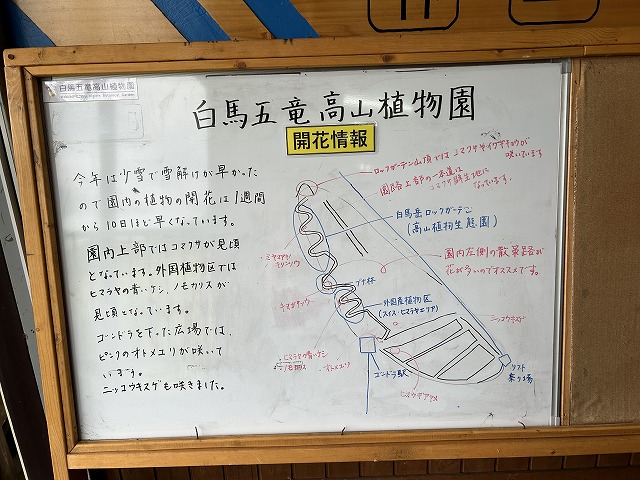 白馬五竜高山植物園
白馬五竜高山植物園
開花情報
今年は少雪で雪解けが早かった
ので園内の植物の開花は1週間
から10日ほど早くなっています。
園内上部ではコマクサが見頃
となっています。外国植物区では
ヒマラヤの青いケシ、ノモカリスが
見頃となっています。
ゴンドラを下った広場では、
ピンクのオトメユリが咲いて
います。
ニッコウキスゲも咲きました。
ロックガーデン山頂ではコマクサやイワギキョウが
咲いています
園路上部の一本道は
コマクサ群生地に
なっています。
白馬岳ロックガーデン
(高山植物生態園)
園内左側の散策路が
花が多いのでオススメです。
ブナ林
外国産植物区
(スイス・ヒマラヤエリア)
ニッコウキスゲ
ヒマラヤの青いケシ
オトメユリ
ゴンドラ駅
ヒオウギアヤメ
リフト
乗り場